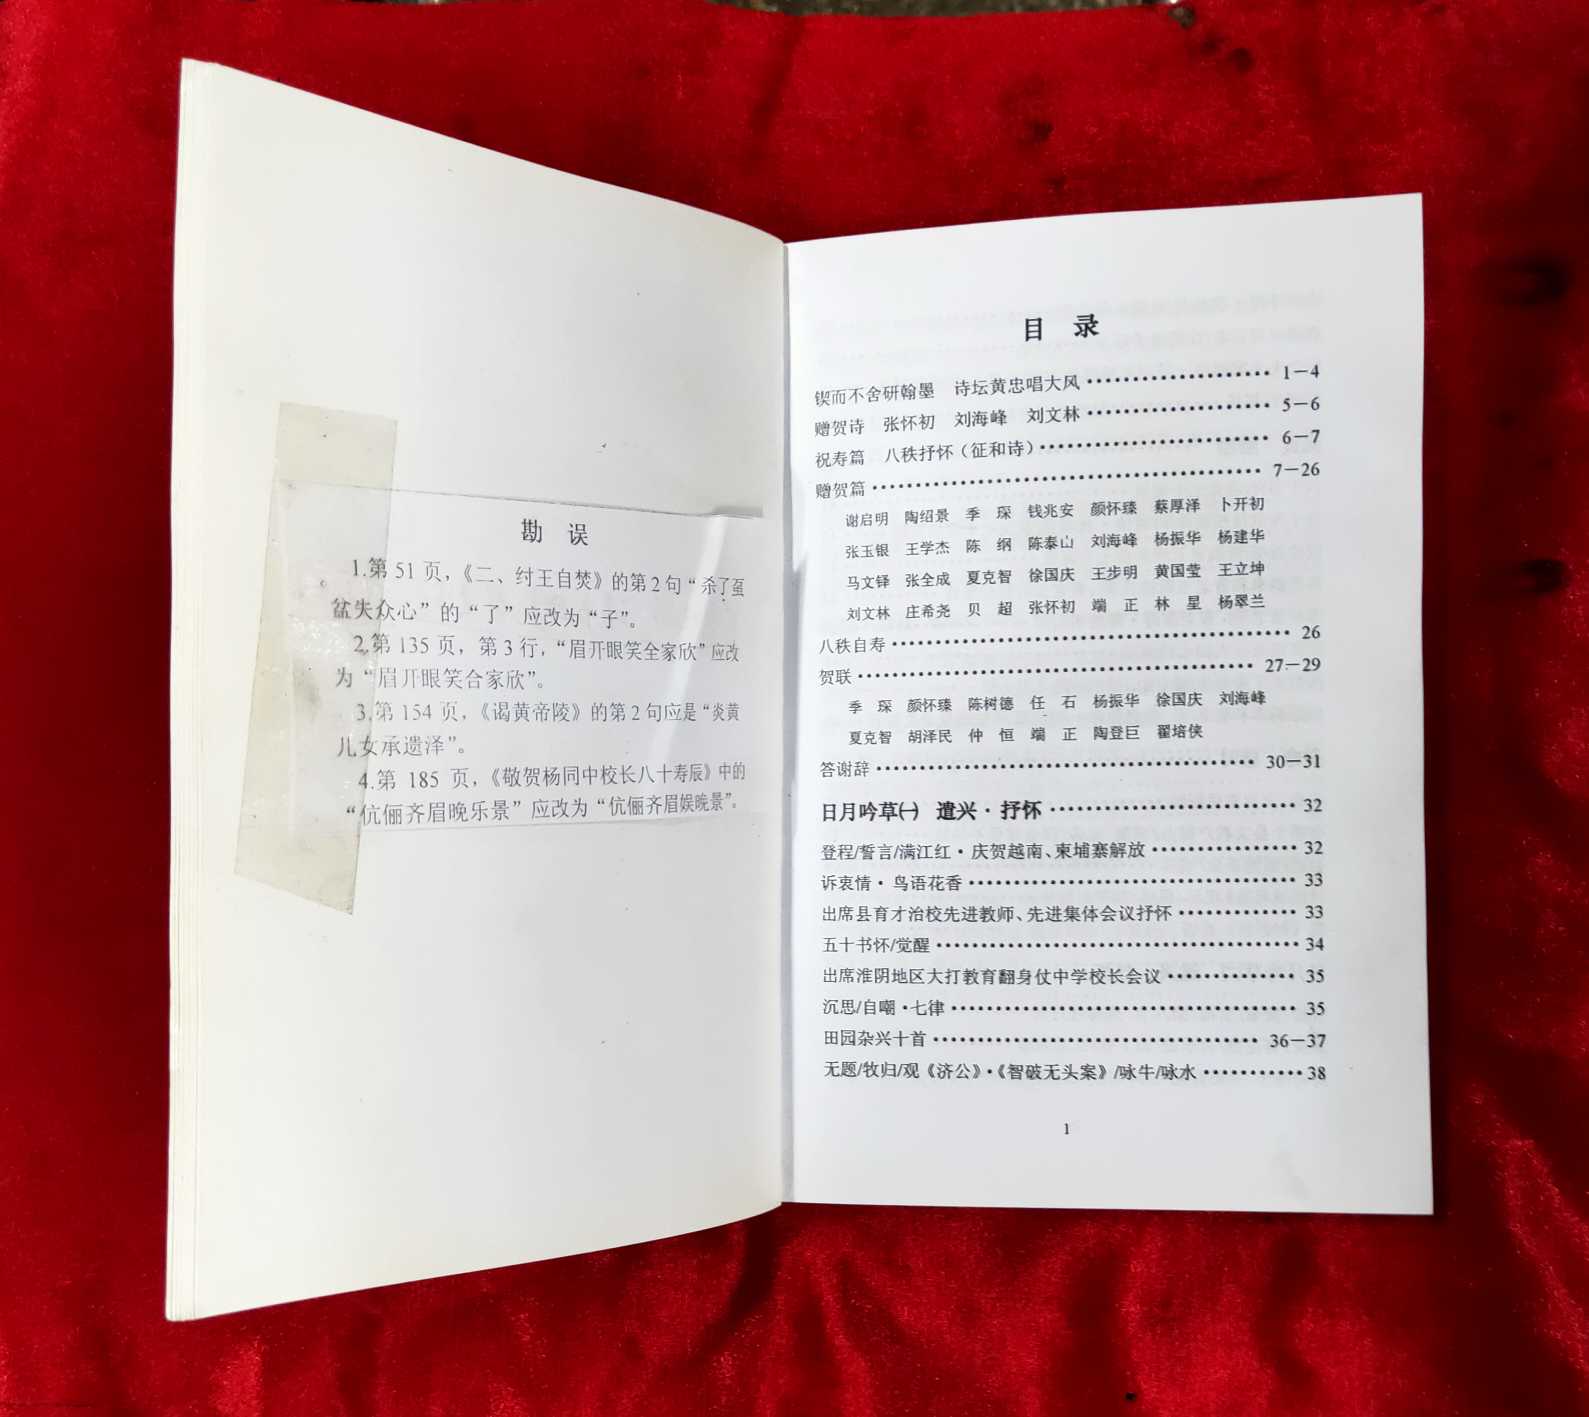 勘 误
1.第 51 页,《二、纣王自焚》的第2句“杀了虿
盆失众心”的“了”应改为“子”。
2.第 135 页, 第3行,“眉开眼笑全家欣”应改
为“眉开眼笑合家欣”。
3.第 154 页,《谒黄帝陵》的第2句应是“炎黄
儿女承遗泽”。
4.第 185 页,《敬贺杨同中校长八十寿辰》中的
“伉俪齐眉晚乐景”应改为“伉俪齐眉娱晚景”。
目 录
锲而不舍研翰墨 诗坛黄忠唱大风 ····················· 1－4
赠贺诗 张怀初 刘海峰 刘文林 ····················· 5－6
祝寿篇 八秩抒怀(征和诗) ·························· 6－7
赠贺篇 ············································· 7－26
谢启明 陶绍景 季 琛 钱兆安 颜怀臻 蔡厚泽 卜开初
张玉银 王学杰 陈 纲 陈泰山 刘海峰 杨振华 杨建华
马文铎 张全成 夏克智 徐国庆 王步明 黄国莹 王立坤
刘文林 庄希尧 贝 超 张怀初 端 正 林 星 杨翠兰
八秩自寿 ············································· 26
贺联 ············································· 27－29
季 琛 颜怀臻 陈树德 任 石 杨振华 徐国庆 刘海峰
夏克智 胡泽民 仲 恒 端 正 陶登巨 翟培侠
答谢辞 ··········································· 30－31
日月吟草㈠ 遣兴·抒怀 ···························· 32
登程/誓言/满江红·庆贺越南、柬埔寨解放 ················ 32
诉衷情·鸟语花香 ····································· 33
出席县育才治校先进教师、先进集体会议抒怀 ············· 33
五十书怀/觉醒 ········································· 34
出席淮阴地区大打教育翻身仗中学校长会议 ·············· 35
沉思/自嘲·七律 ······································· 35
田园杂兴十首 ···································· 36－37
无题/牧归/观《济公》·《智破无头案》/咏牛/咏水 ··········· 38
1